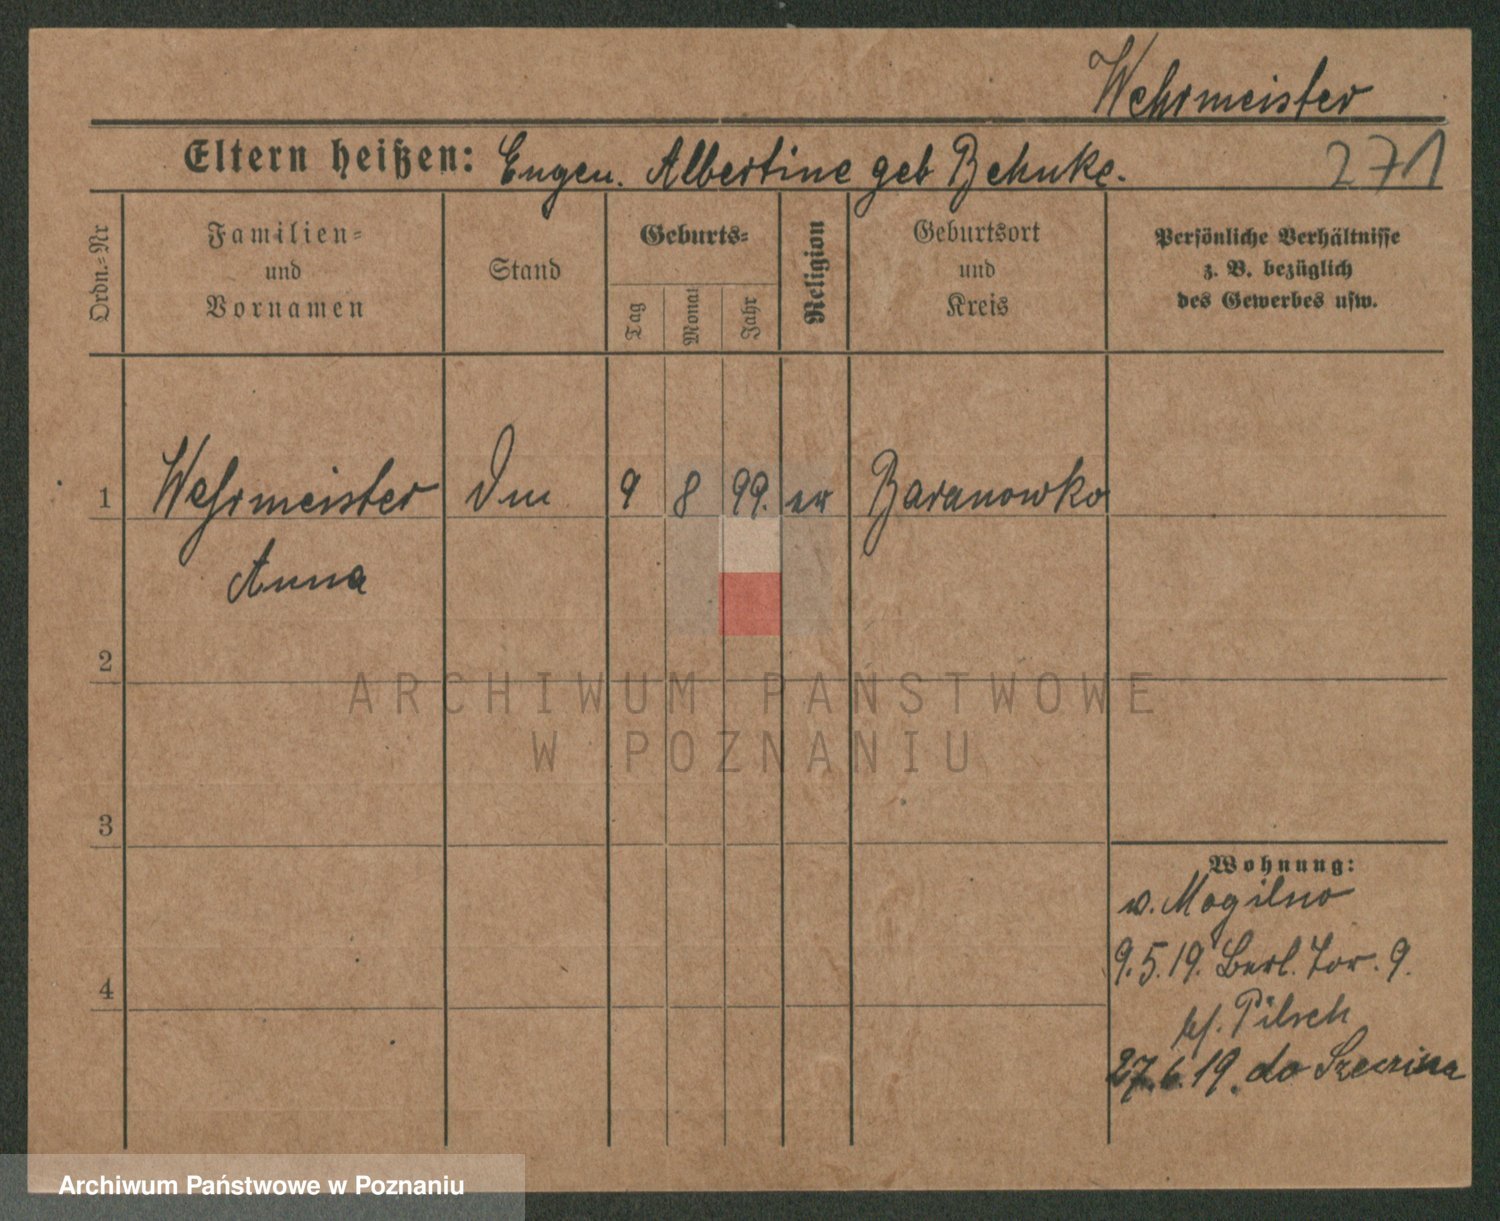 Wehrmeister
Eltern heißen: Eugen. Albertine geb Behnke.
271
Ordn.=Nr
Familien=
und
Vornamen
Stand
Geburts=
Tag
Monat
Jahr
Religion
Geburtsort
und
Kreis
Persönliche Verhältnisse
z. B. bezüglich
des Gewerbes usw.
1 Wehrmeister 9 8 99. ev Baranowko
Anna
2
ARCHIWUM PAŃSTWOWE
W POZNANIU
3
Wohnung:
v. Mogilno
4
9.5.19. Berl. Tor. 9.
Pilsch
27.6.19. do
Archiwum Państwowe w Poznaniu